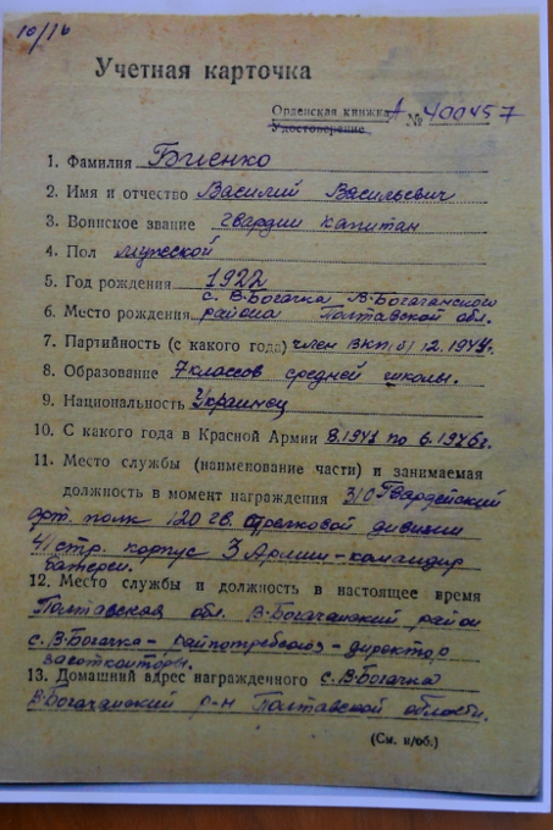 10/16
Учетная карточка
Орденская книжка А № 400457
Удостоверение
1. Фамилия Биенко
2. Имя и отчество Василий Васильевич
3. Воинское звание гвардии капитан
4. Пол мужской
5. Год рождения 1922
с. В-Богачка В-Богачанского
6. Место рождения района Полтавской обл.
7. Партийность (с какого года) член ВКП(б) 12.1944г.
8. Образование 7 классов средней школы.
9. Национальность Украинец
10. С какого года в Красной Армии 8.1941 по 6.1946г.
11. Место службы (наименование части) и занимаемая
должность в момент награждения 310 Гвардейский
арт. полк 120 гв. Стрелковой дивизии
41 стр. корпус 3 Армии - командир
батереи.
12. Место службы и должность в настоящее время
Полтавская обл. В-Богачанский район
с. В-Богачка - райпотребсоюз - директор
заготконторы.
13. Домашний адрес награжденного с. В-Богачка
В-Богачанский р-н Полтавской области.
(См. н/об.)